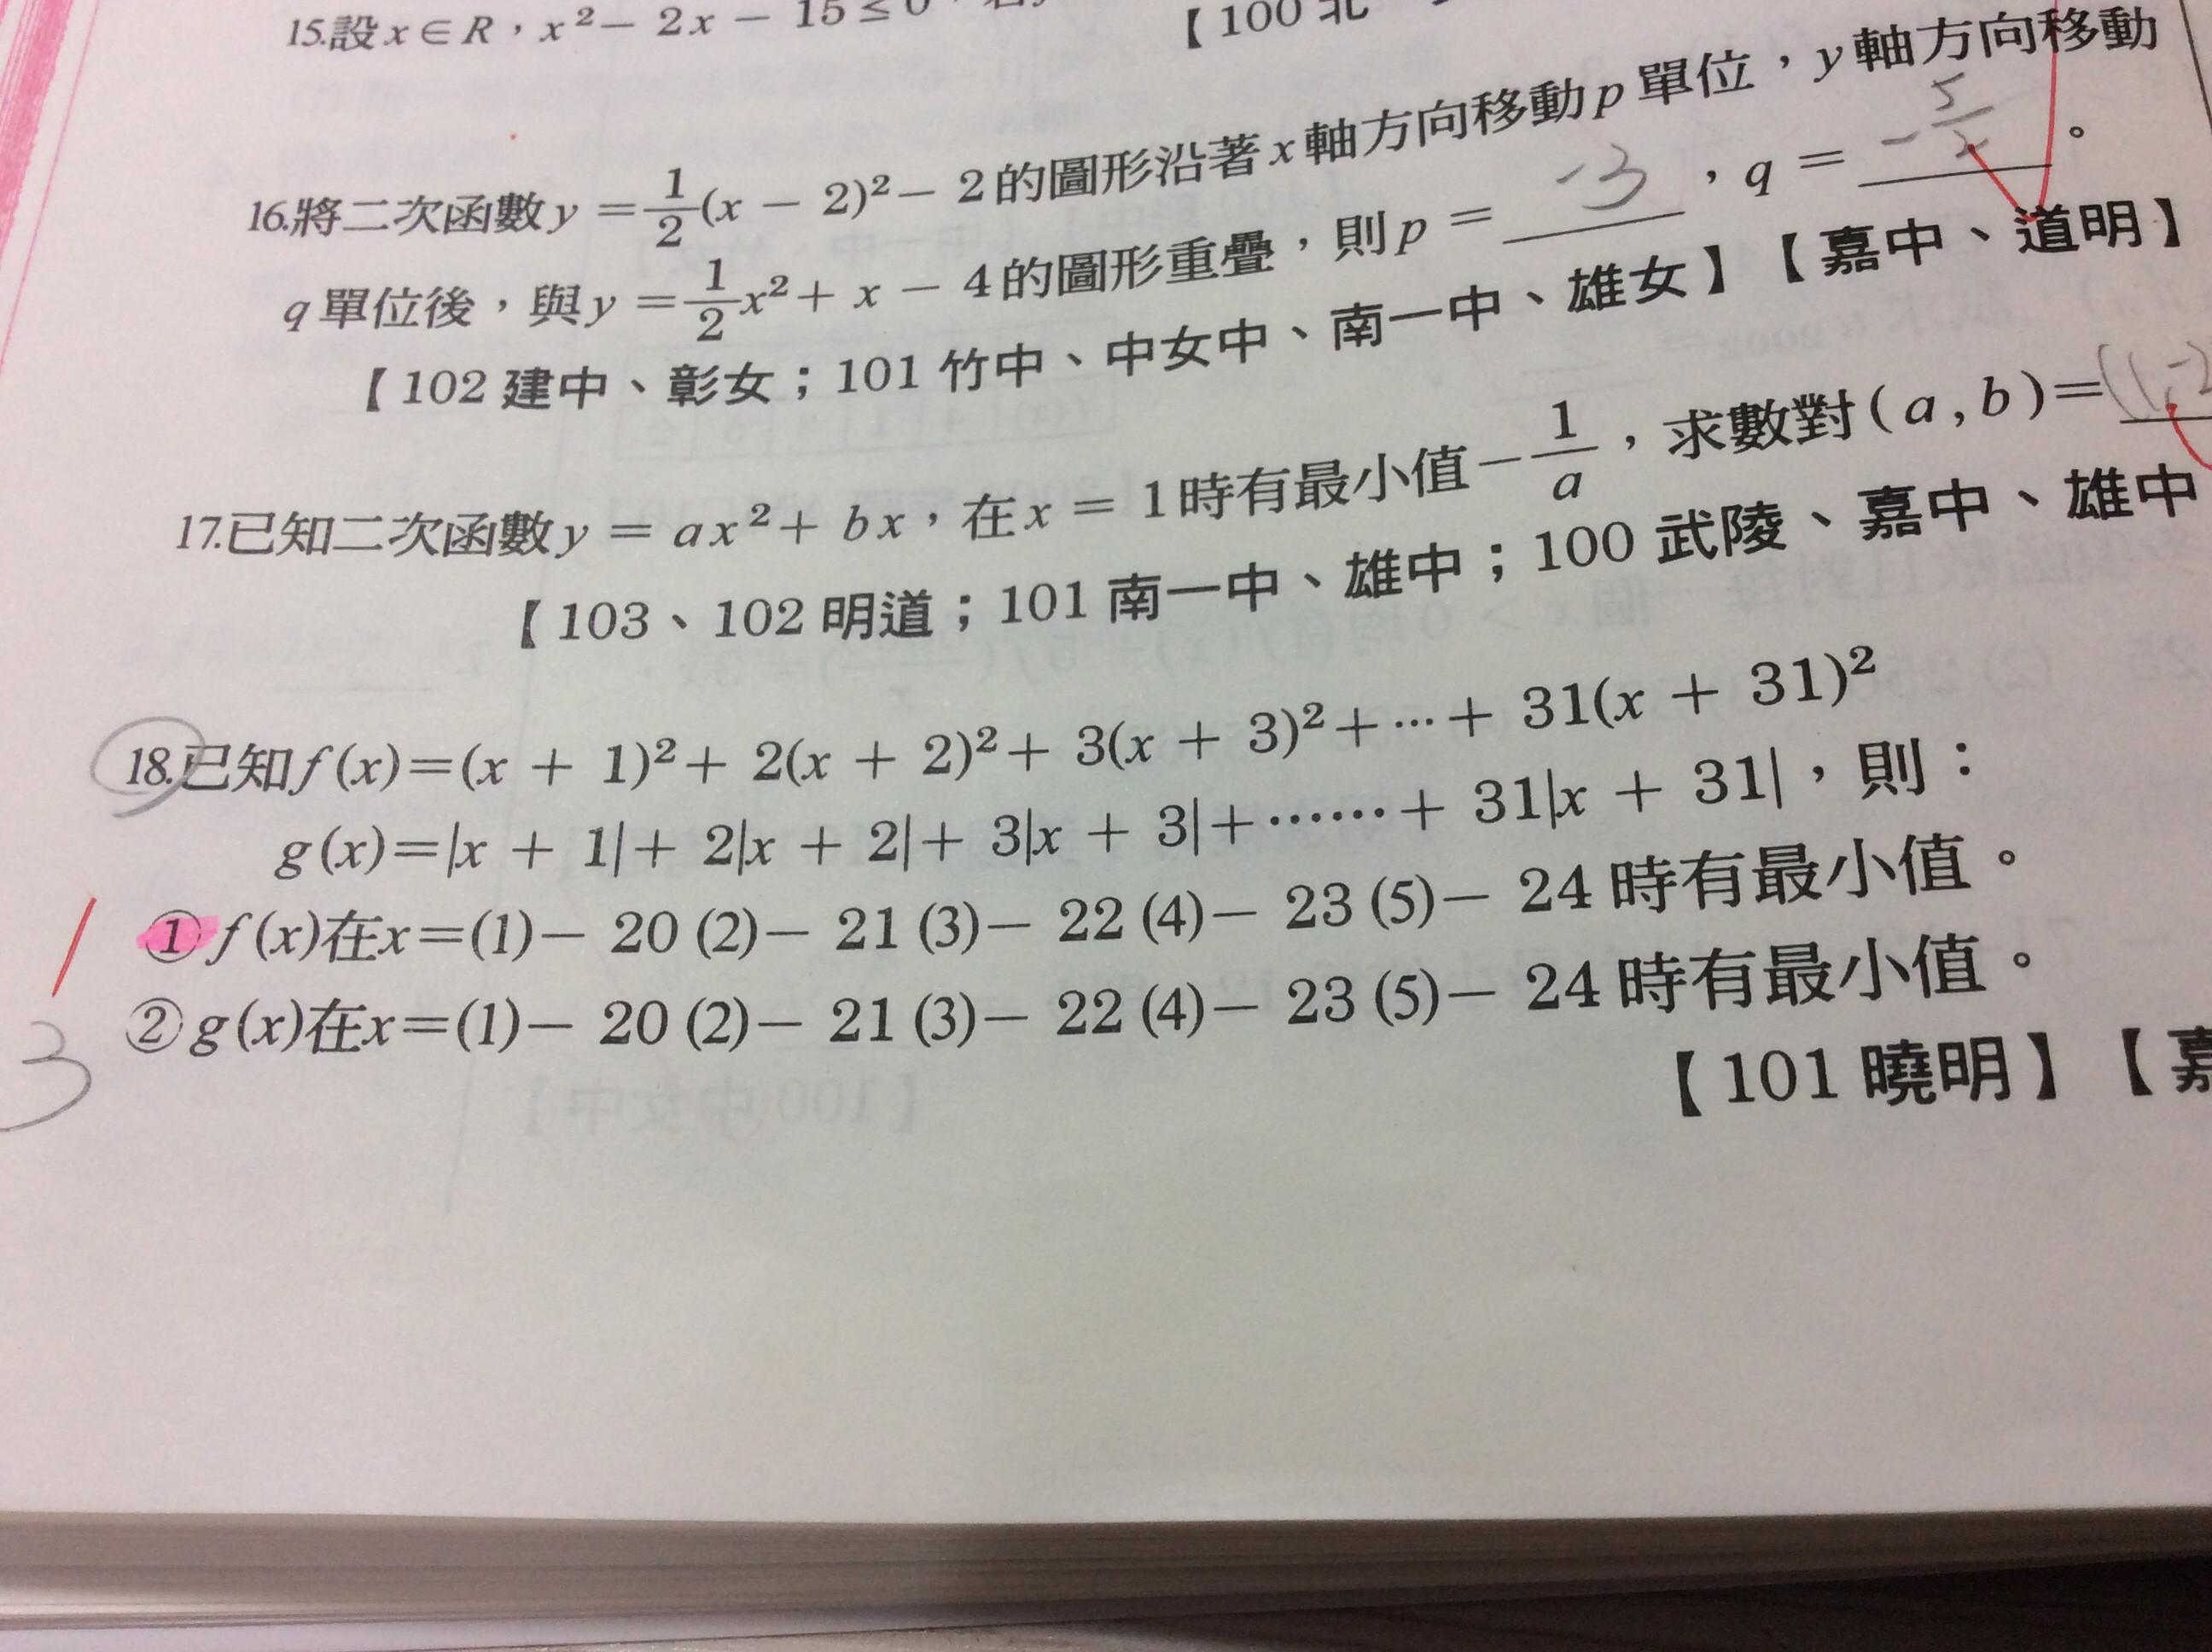 15.設x∈R，x²－2x－15≤0
【100 北
16.將二次函數y＝1/2(x－2)²－2的圖形沿著x軸方向移動p單位，y軸方向移動
q單位後，與y＝1/2x²＋x－4的圖形重疊，則p＝ -3 ，q＝ -5/2 。
【102 建中、彰女；101 竹中、中女中、南一中、雄女】【嘉中、道明】
17.已知二次函數y＝ax²＋bx，在x＝1時有最小值－1/a，求數對(a,b)＝(1,-2
【103、102 明道；101 南一中、雄中；100 武陵、嘉中、雄中
18.已知f(x)＝(x＋1)²＋2(x＋2)²＋3(x＋3)²＋…＋31(x＋31)²
g(x)＝|x＋1|＋2|x＋2|＋3|x＋3|＋……＋31|x＋31|，則：
①f(x)在x＝(1)－20 (2)－21 (3)－22 (4)－23 (5)－24 時有最小值。
3 ②g(x)在x＝(1)－20 (2)－21 (3)－22 (4)－23 (5)－24 時有最小值。
【101 曉明】【嘉